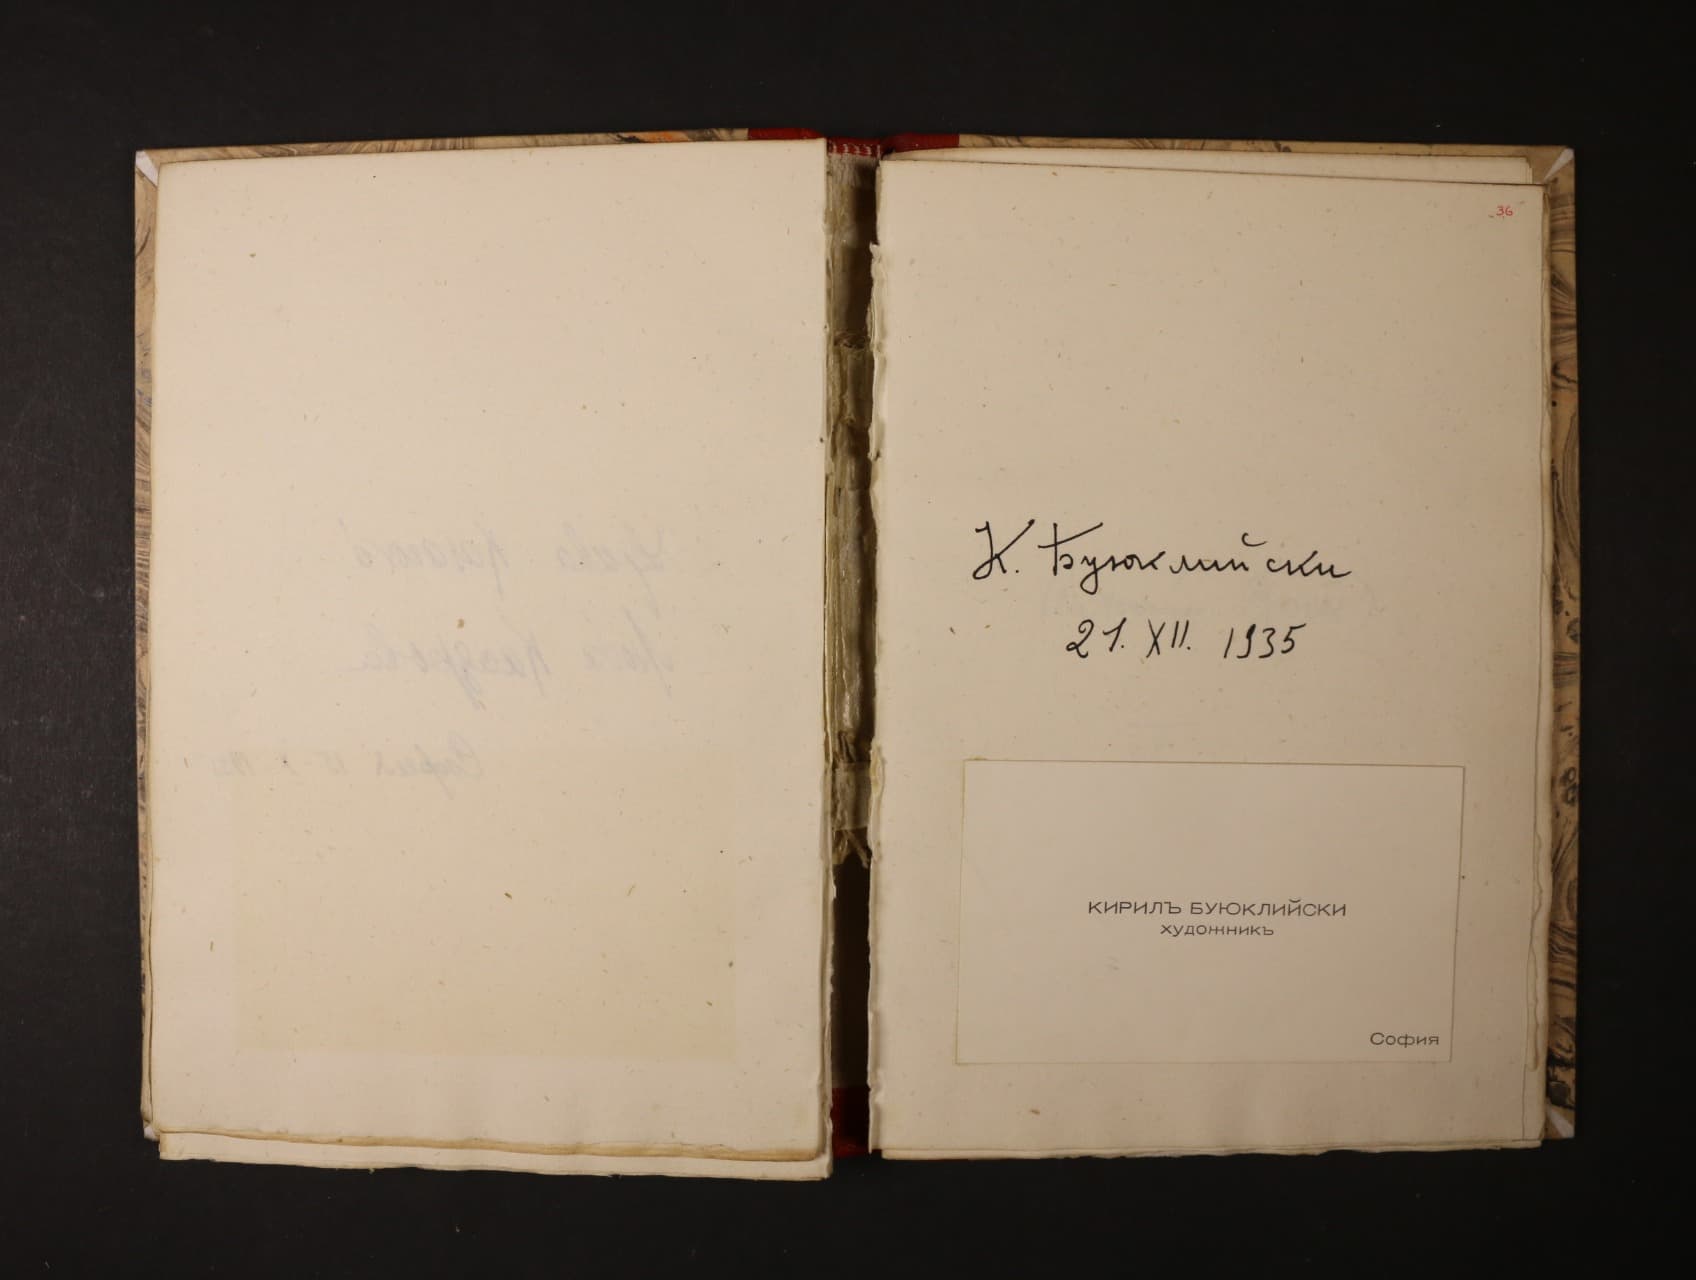 36
К. Буюклийски
21. XII. 1935
КИРИЛЪ БУЮКЛИЙСКИ
художникъ
София